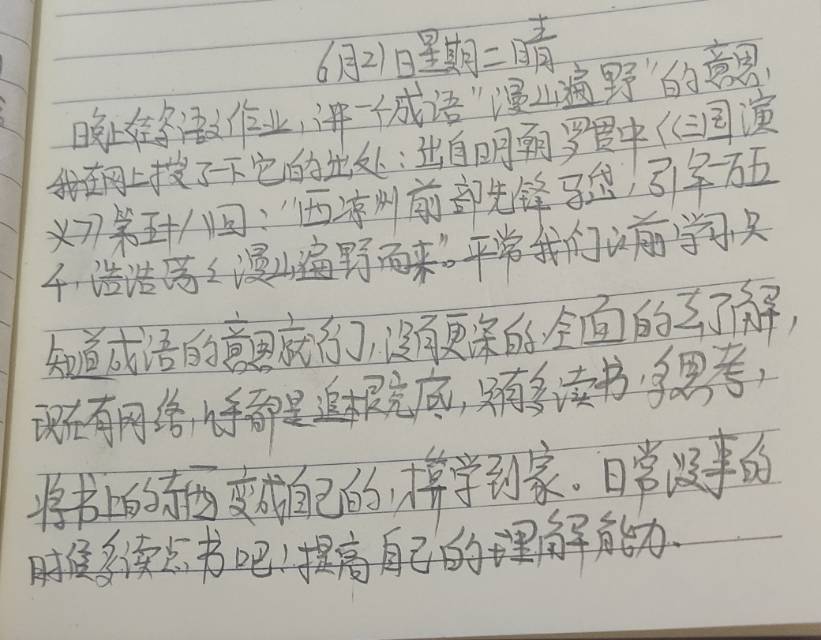 6月21日星期二晴
晚上在写语文作业,讲一个成语"漫山遍野"的意思,
我在网上搜了一下它的出处:出自明朝罗贯中《《三国演
义》》第五十八回:"西凉州前部先锋马岱,引军一万五
千,浩浩荡荡漫山遍野而来"。平常我们以前学习只
知道成语的意思就行了,没有更深的全面的去了解,
现在有网络,凡事都是追根究底,只有多读书,多思考,
将书上的东西变成自己的,才算学到家。日常没事的
时候多读点书吧!提高自己的理解能力.